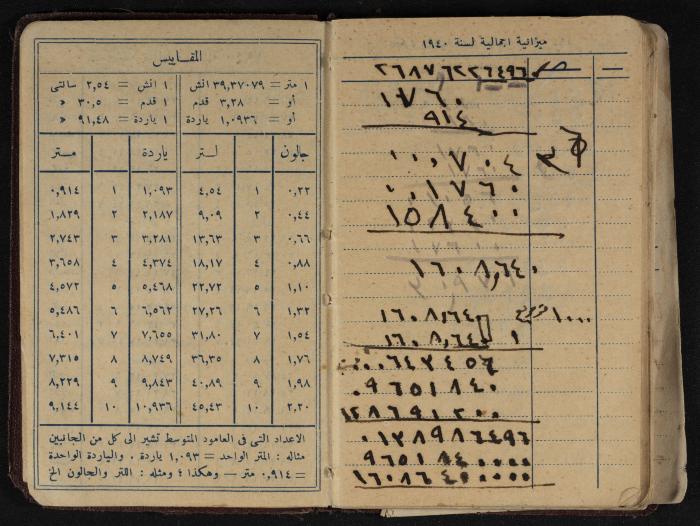 ميزانية اجمالية لسنة ١٩٤٠
٢٦٨٧٦٢٢٦٤٩٦٠
١٧٦٠
٩١٤
٠٠,٧٠٤
٠,١٧٦٠
١٥٨٤٠٠
١٦٠٨,٦٤٠
١٦٠٨,٦٤٠
١٠٠٠
١٦٠٨,٦٤٠ ١
٠٠٦٤٣٤٥٦
٠٩٦٥١٨٤٠
١٢٨٦٩١٢٠٠
٠١٢٨٩٨٦٤٩٦
٩٦٥١٨٤٠٠٠٠٠
١٦٠٨٦٤٠٠٠٠٠٠
المقاييس
١ متر = ٣٩,٣٧٠٧٩ انش
أو = ٣,٢٨ قدم
أو = ١,٠٩٣٦ ياردة
١ انش = ٢,٥٤ سانتى
١ قدم = ٣٠,٥ »
١ ياردة = ٩١,٤٨ »
جالون لتر ياردة متر
٠,٢٢ ١ ٤,٥٤ ١,٠٩٣ ١ ٠,٩١٤
٠,٤٤ ٢ ٩,٠٩ ٢,١٨٧ ٢ ١,٨٢٩
٠,٦٦ ٣ ١٣,٦٣ ٣,٢٨١ ٣ ٢,٧٤٣
٠,٨٨ ٤ ١٨,١٧ ٤,٣٧٤ ٤ ٣,٦٥٨
١,١٠ ٥ ٢٢,٧٢ ٥,٤٦٨ ٥ ٤,٥٧٢
١,٣٢ ٦ ٢٧,٢٦ ٦,٥٦٢ ٦ ٥,٤٨٦
١,٥٤ ٧ ٣١,٨٠ ٧,٦٥٥ ٧ ٦,٤٠١
١,٧٦ ٨ ٣٦,٣٥ ٨,٧٤٩ ٨ ٧,٣١٥
١,٩٨ ٩ ٤٠,٨٩ ٩,٨٤٣ ٩ ٨,٢٢٩
٢,٢٠ ١٠ ٤٥,٤٣ ١٠,٩٣٦ ١٠ ٩,١٤٤
الاعداد التى فى العامود المتوسط تشير الى كل من الجانبين
مثاله : المتر الواحد = ١,٠٩٣ ياردة . والياردة الواحدة
= ٠,٩١٤ متر — وهكذا ؛ ومثله : اللتر والجالون الخ